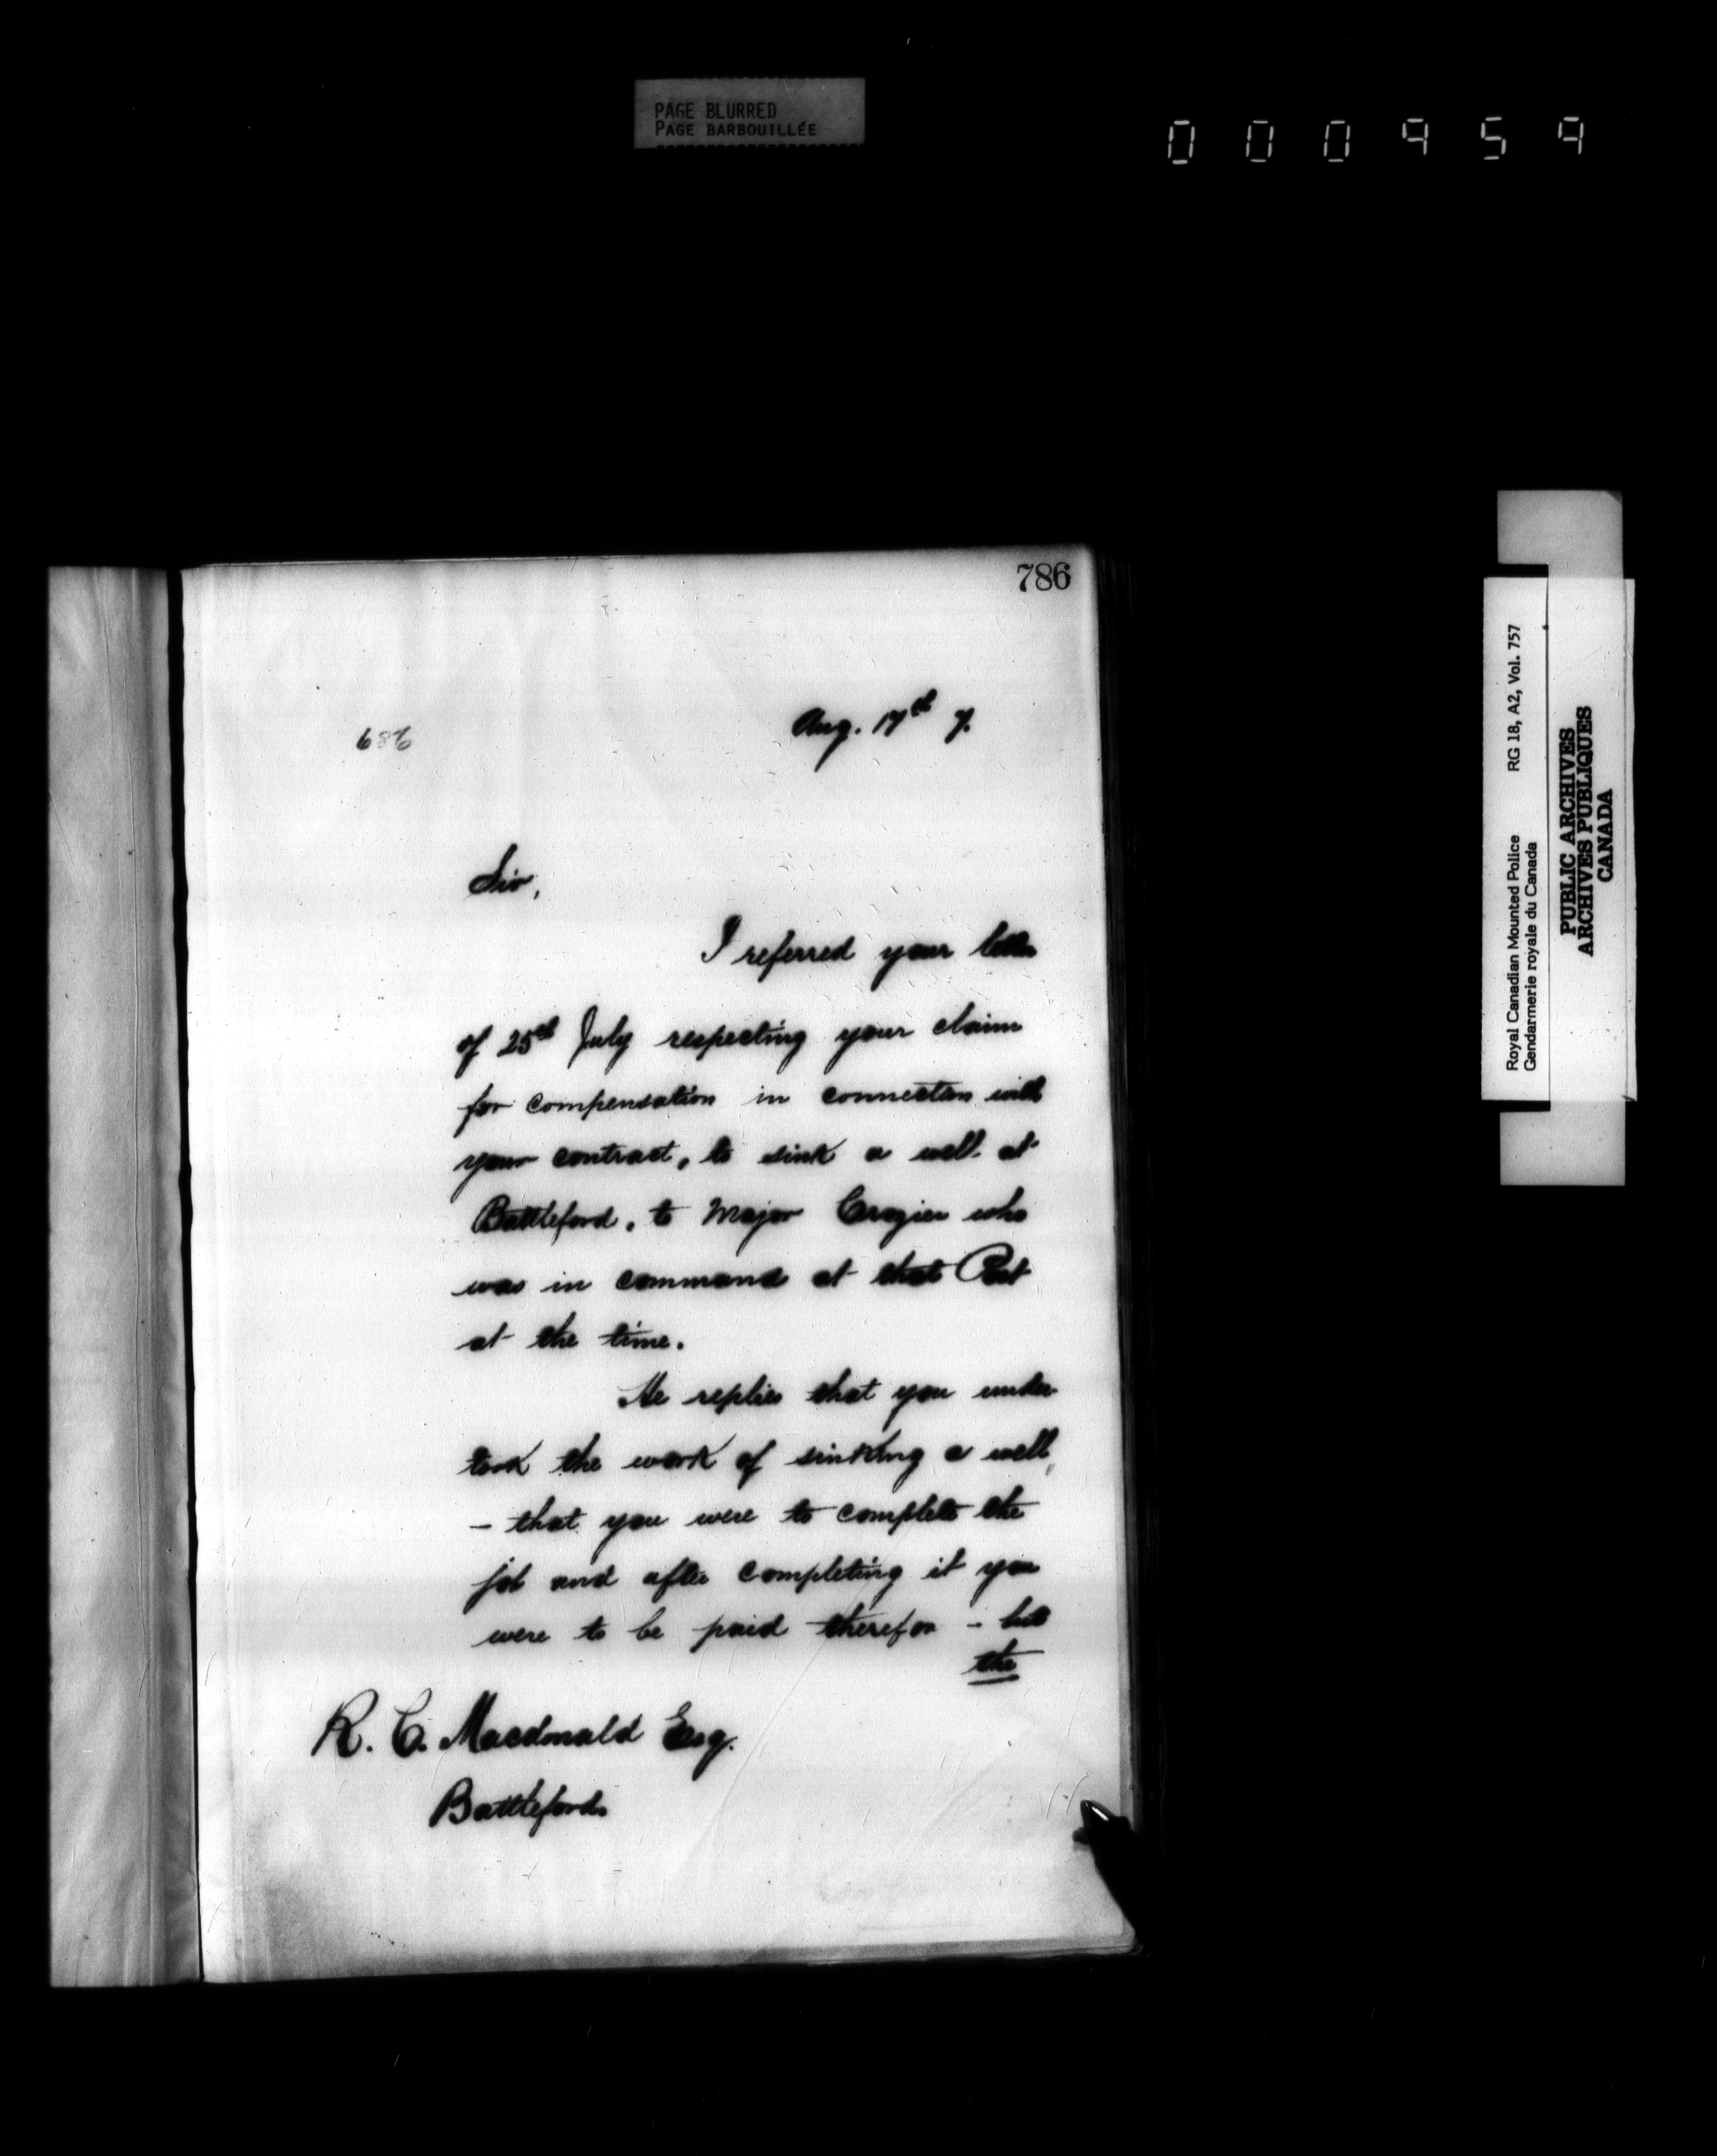 PAGE BLURRED
PAGE BARBOUILLÉE
000959
786
686
Aug. 17th 7.
Sir,
I referred your letter
of 25th July respecting your claim
for compensation in connection with
your contract, to sink a well at
Battleford, to Major Crozier who
was in command at that Post
at the time.
He replies that you under-
took the work of sinking a well,
- that you were to complete the
job and after completing it you
were to be paid therefor - but
the
R. C. Macdonald Esq.
Battleford.
Royal Canadian Mounted Police RG 18, A2, Vol. 757
Gendarmerie royale du Canada
PUBLIC ARCHIVES
ARCHIVES PUBLIQUES
CANADA